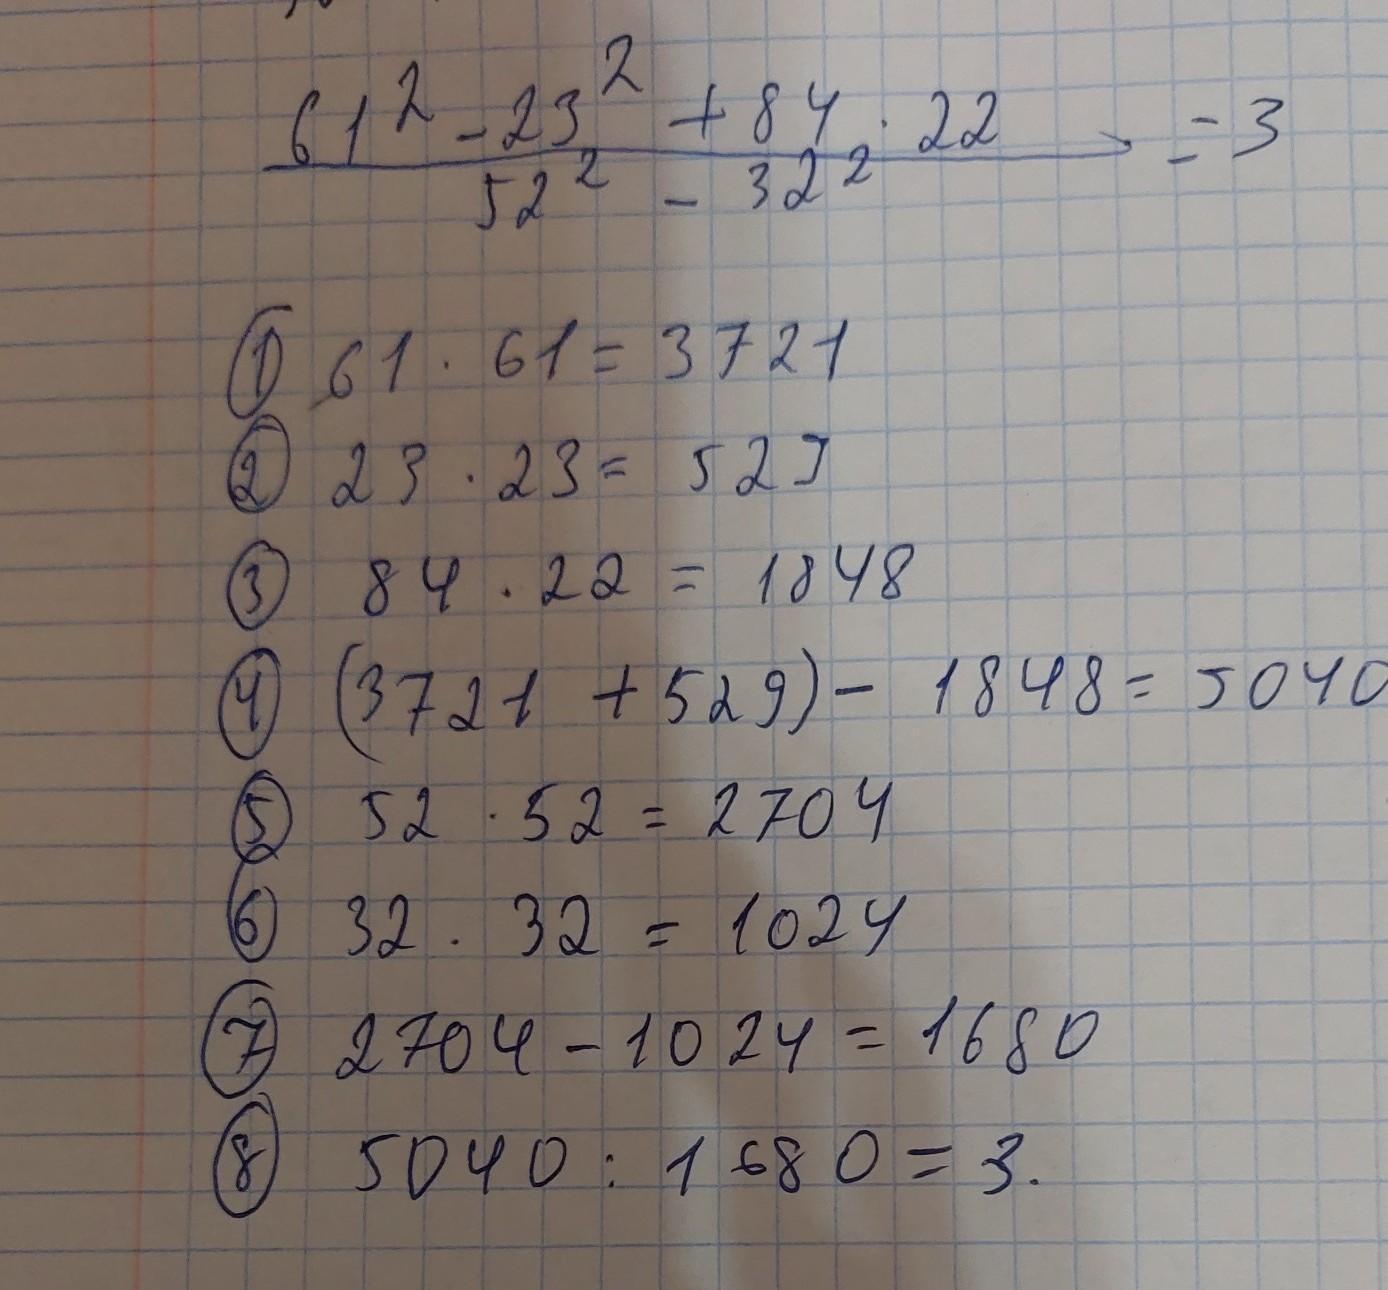 61² - 23² + 84 · 22 = 3
52² - 32²
① 61 · 61 = 3721
② 23 · 23 = 529
③ 84 · 22 = 1848
④ (3721 + 529) - 1848 = 5040
⑤ 52 · 52 = 2704
⑥ 32 · 32 = 1024
⑦ 2704 - 1024 = 1680
⑧ 5040 : 1680 = 3.